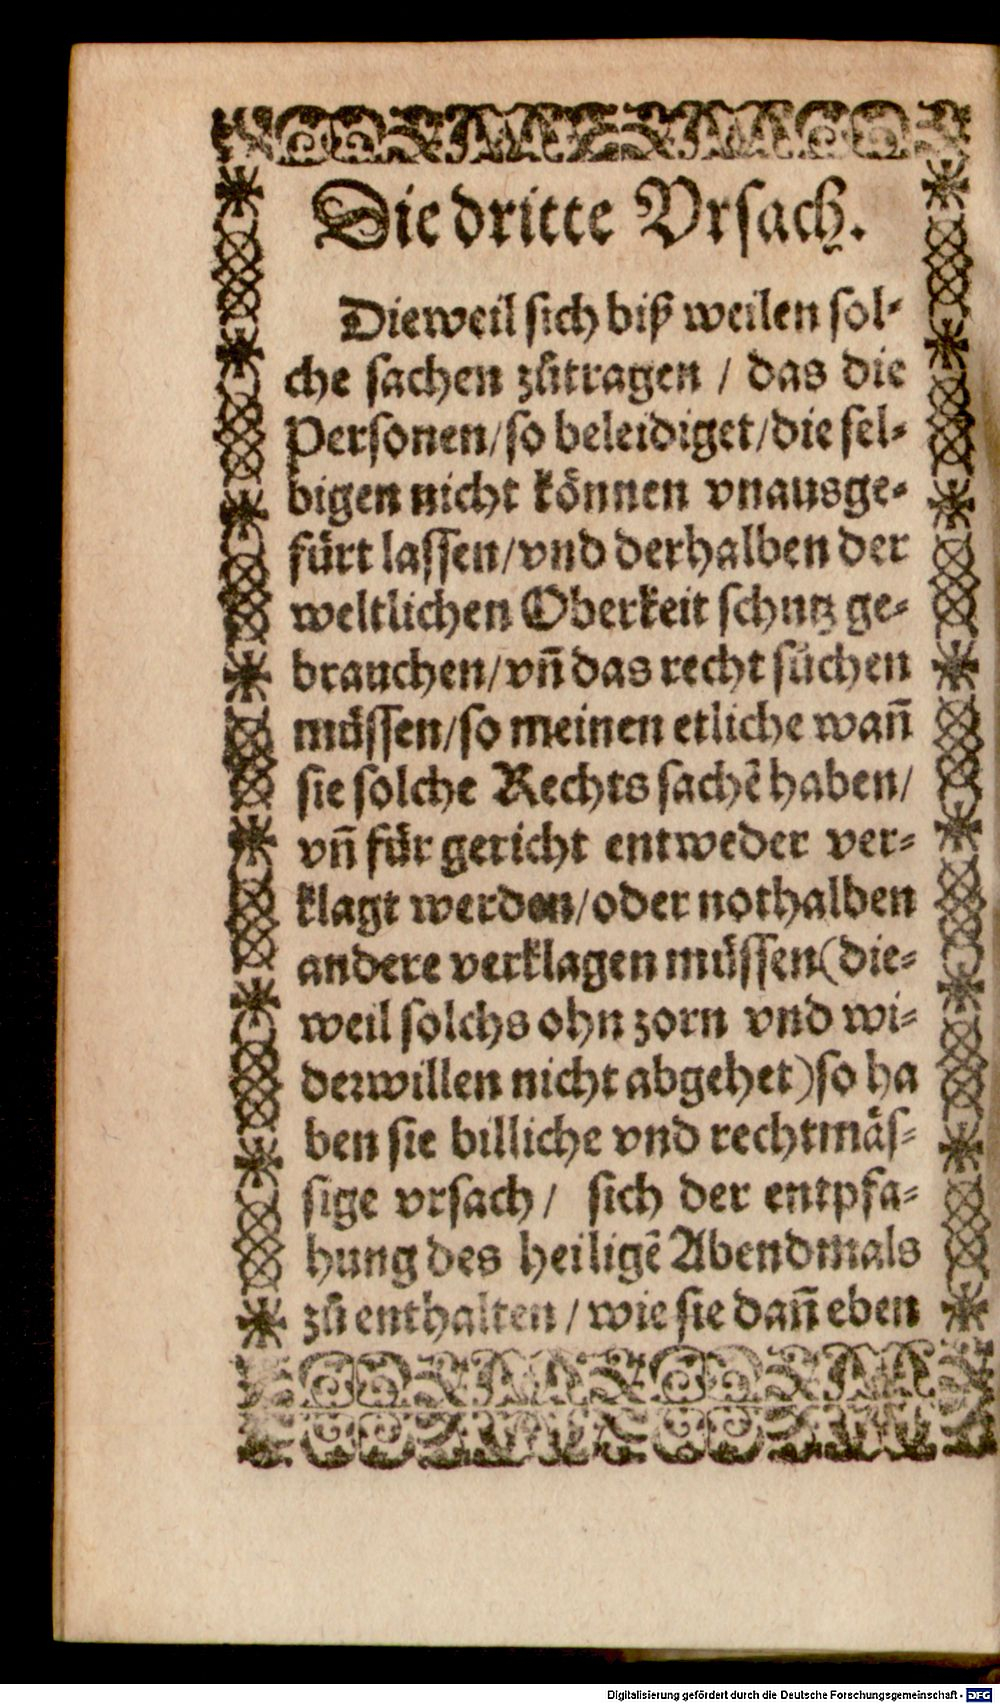 Die dritte Vrsach.
Dieweil sich biß weilen sol-
che sachen zůtragen / das die
Personen/so beleidiget/die sel-
bigen nicht können vnausge-
fürt lassen/vnd derhalben der
weltlichen Oberkeit schutz ge-
brauchen/vn̄ das recht sůchen
müssen/so meinen etliche wan̄
sie solche Rechts sachē haben/
vn̄ für gericht entweder ver-
klagt werden/oder nothalben
andere verklagen müssen(die-
weil solchs ohn zorn vnd wi-
derwillen nicht abgehet)so ha
ben sie billiche vnd rechtmäs-
sige vrsach/ sich der entpfa-
hung des heiligē Abendmals
zů enthalten / wie sie dan̄ eben
Digitalisierung gefördert durch die Deutsche Forschungsgemeinschaft - DFG